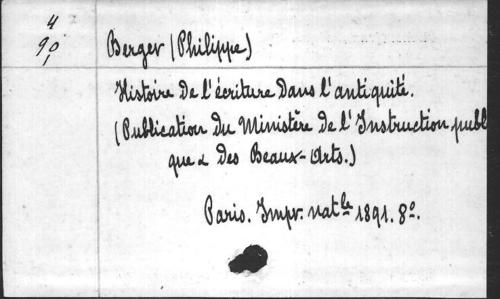 4
90
1
Berger (Philippe)
Histoire de l'écriture dans l'antiquité.
(Publication du Ministère de l'Instruction publi
que & des Beaux-Arts.)
Paris. Impr. natle 1891. 8º.